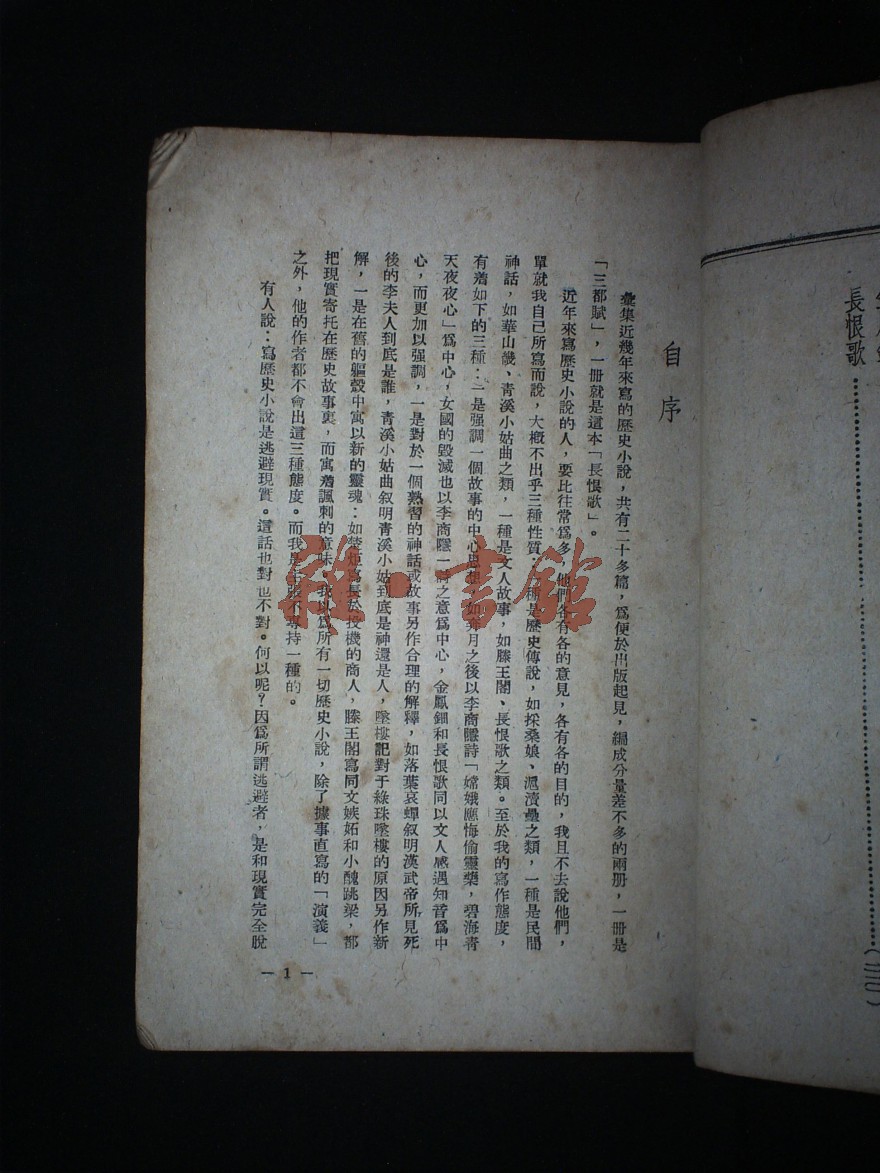 長恨歌……………………(二二〇)
自序
彙集近幾年來寫的歷史小說，共有二十多篇，爲便於出版起見，編成分量差不多的兩册，一册是
「三都賦」，一册就是這本「長恨歌」。
近年來寫歷史小說的人，要比往常爲多，他們各有各的意見，各有各的目的，我且不去說他們，
單就我自己所寫而說，大概不出乎三種性質：一種是歷史傳說，如採桑娘、滬瀆壘之類，一種是民間
神話，如華山畿、青溪小姑曲之類，一種是文人故事，如滕王閣、長恨歌之類。至於我的寫作態度，
有着如下的三種：一是强調一個故事的中心思想，如奔月之後以李商隱詩「嫦娥應悔偷靈藥，碧海青
天夜夜心」爲中心，女國的毀滅也以李商隱一詩之意爲中心，金鳳鈿和長恨歌同以文人感遇知音爲中
心，而更加以强調，一是對於一個熟習的神話或故事另作合理的解釋，如落葉哀蟬叙明漢武帝所見死
後的李夫人到底是誰，青溪小姑曲叙明青溪小姑到底是神還是人，墜樓記對于綠珠墜樓的原因另作新
解，一是在舊的軀殼中寓以新的靈魂：如楚炬寫長於投機的商人，滕王閣寫同文嫉妬和小醜跳梁，都
把現實寄托在歷史故事裏，而寓着諷刺的意味。我以爲所有一切歷史小說，除了據事直寫的「演義」
之外，他的作者都不會出這三種態度。而我是主張不專持一種的。
有人說：寫歷史小說是逃避現實。這話也對也不對。何以呢？因爲所謂逃避者，是和現實完全脫
— 1 —
雅·書館